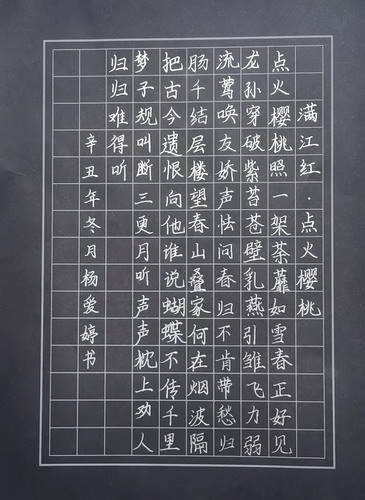 满江红·点火樱桃
点火樱桃照一架荼蘼如雪春正好见
龙孙穿破紫苔苍壁乳燕引雏飞力弱
流莺唤友娇声怯问春归不肯带愁归
肠千结层楼望春山叠家何在烟波隔
把古今遗恨向他谁说蝴蝶不传千里
梦子规叫断三更月听声声枕上劝人
归归难得听
辛丑年冬月杨爱婷书